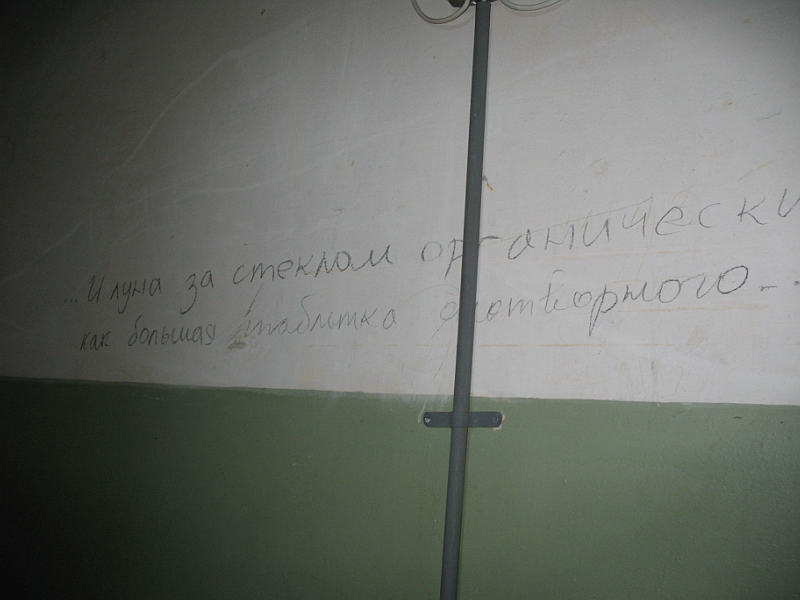 ...И луна за стеклом органически
как большая таблетка снотворного...